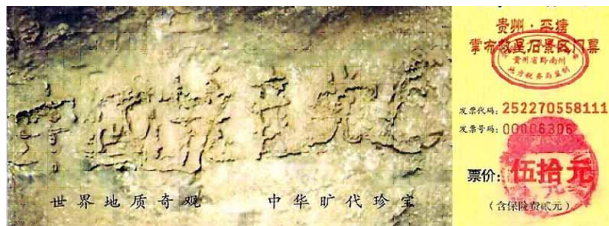 世界地质奇观 中华旷代珍宝
贵州·平塘
掌布救星石景区门票
贵州省黔南州
地方税务局监制
发票代码: 252270558111
发票号码: 00006306
票价: 伍拾元
(含保险费贰元)